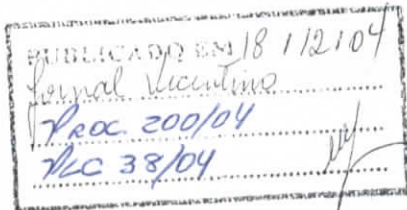 PUBLICADO EM 18/12/04
Jornal Vicentino
PROC. 200/04
PLC 38/04